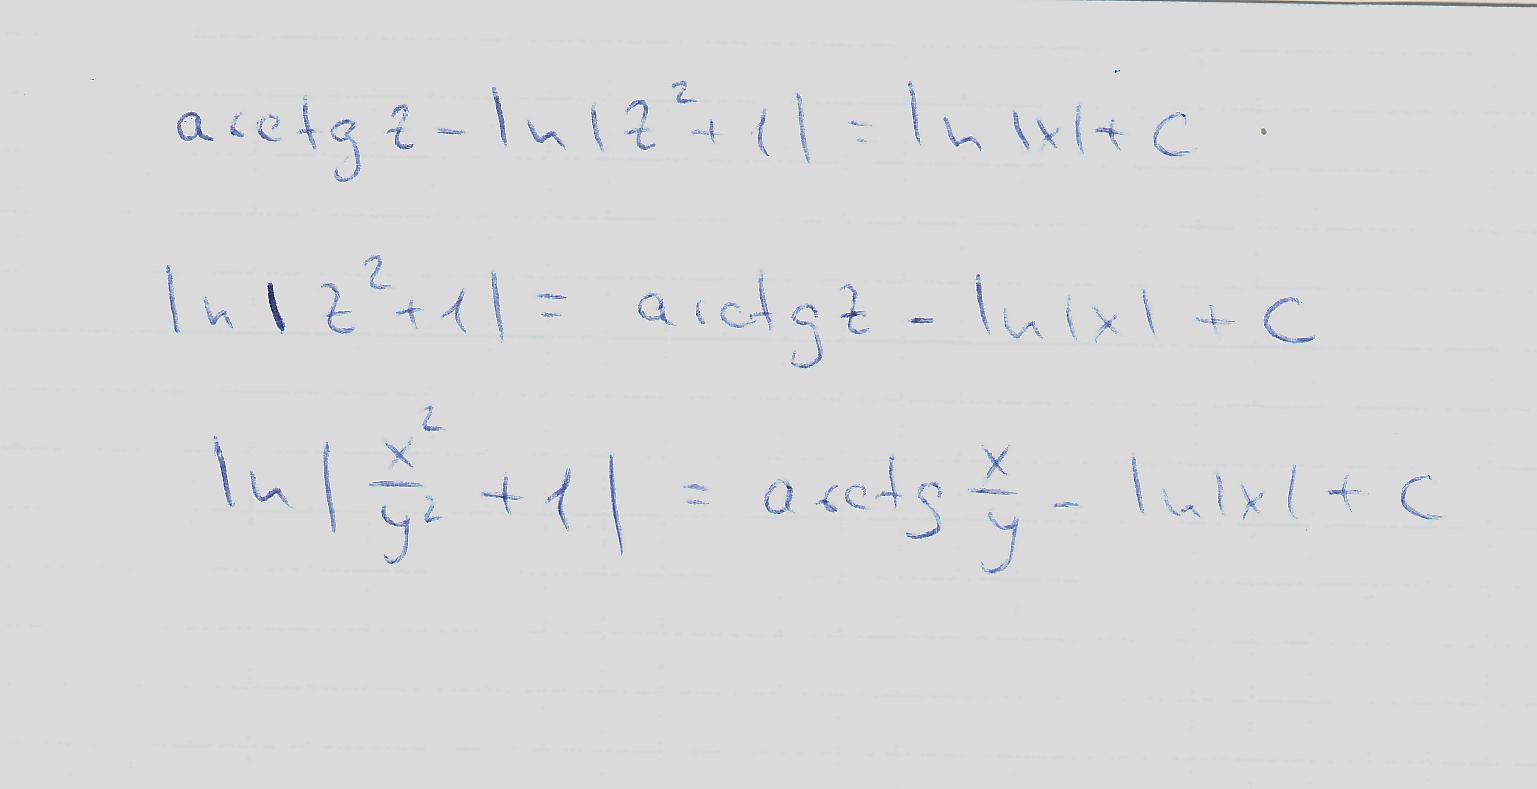 arctg z - ln |z² + 1| = ln |x| + C
ln |z² + 1| = arctg z - ln |x| + C
ln |x²/y² + 1| = arctg x/y - ln |x| + C